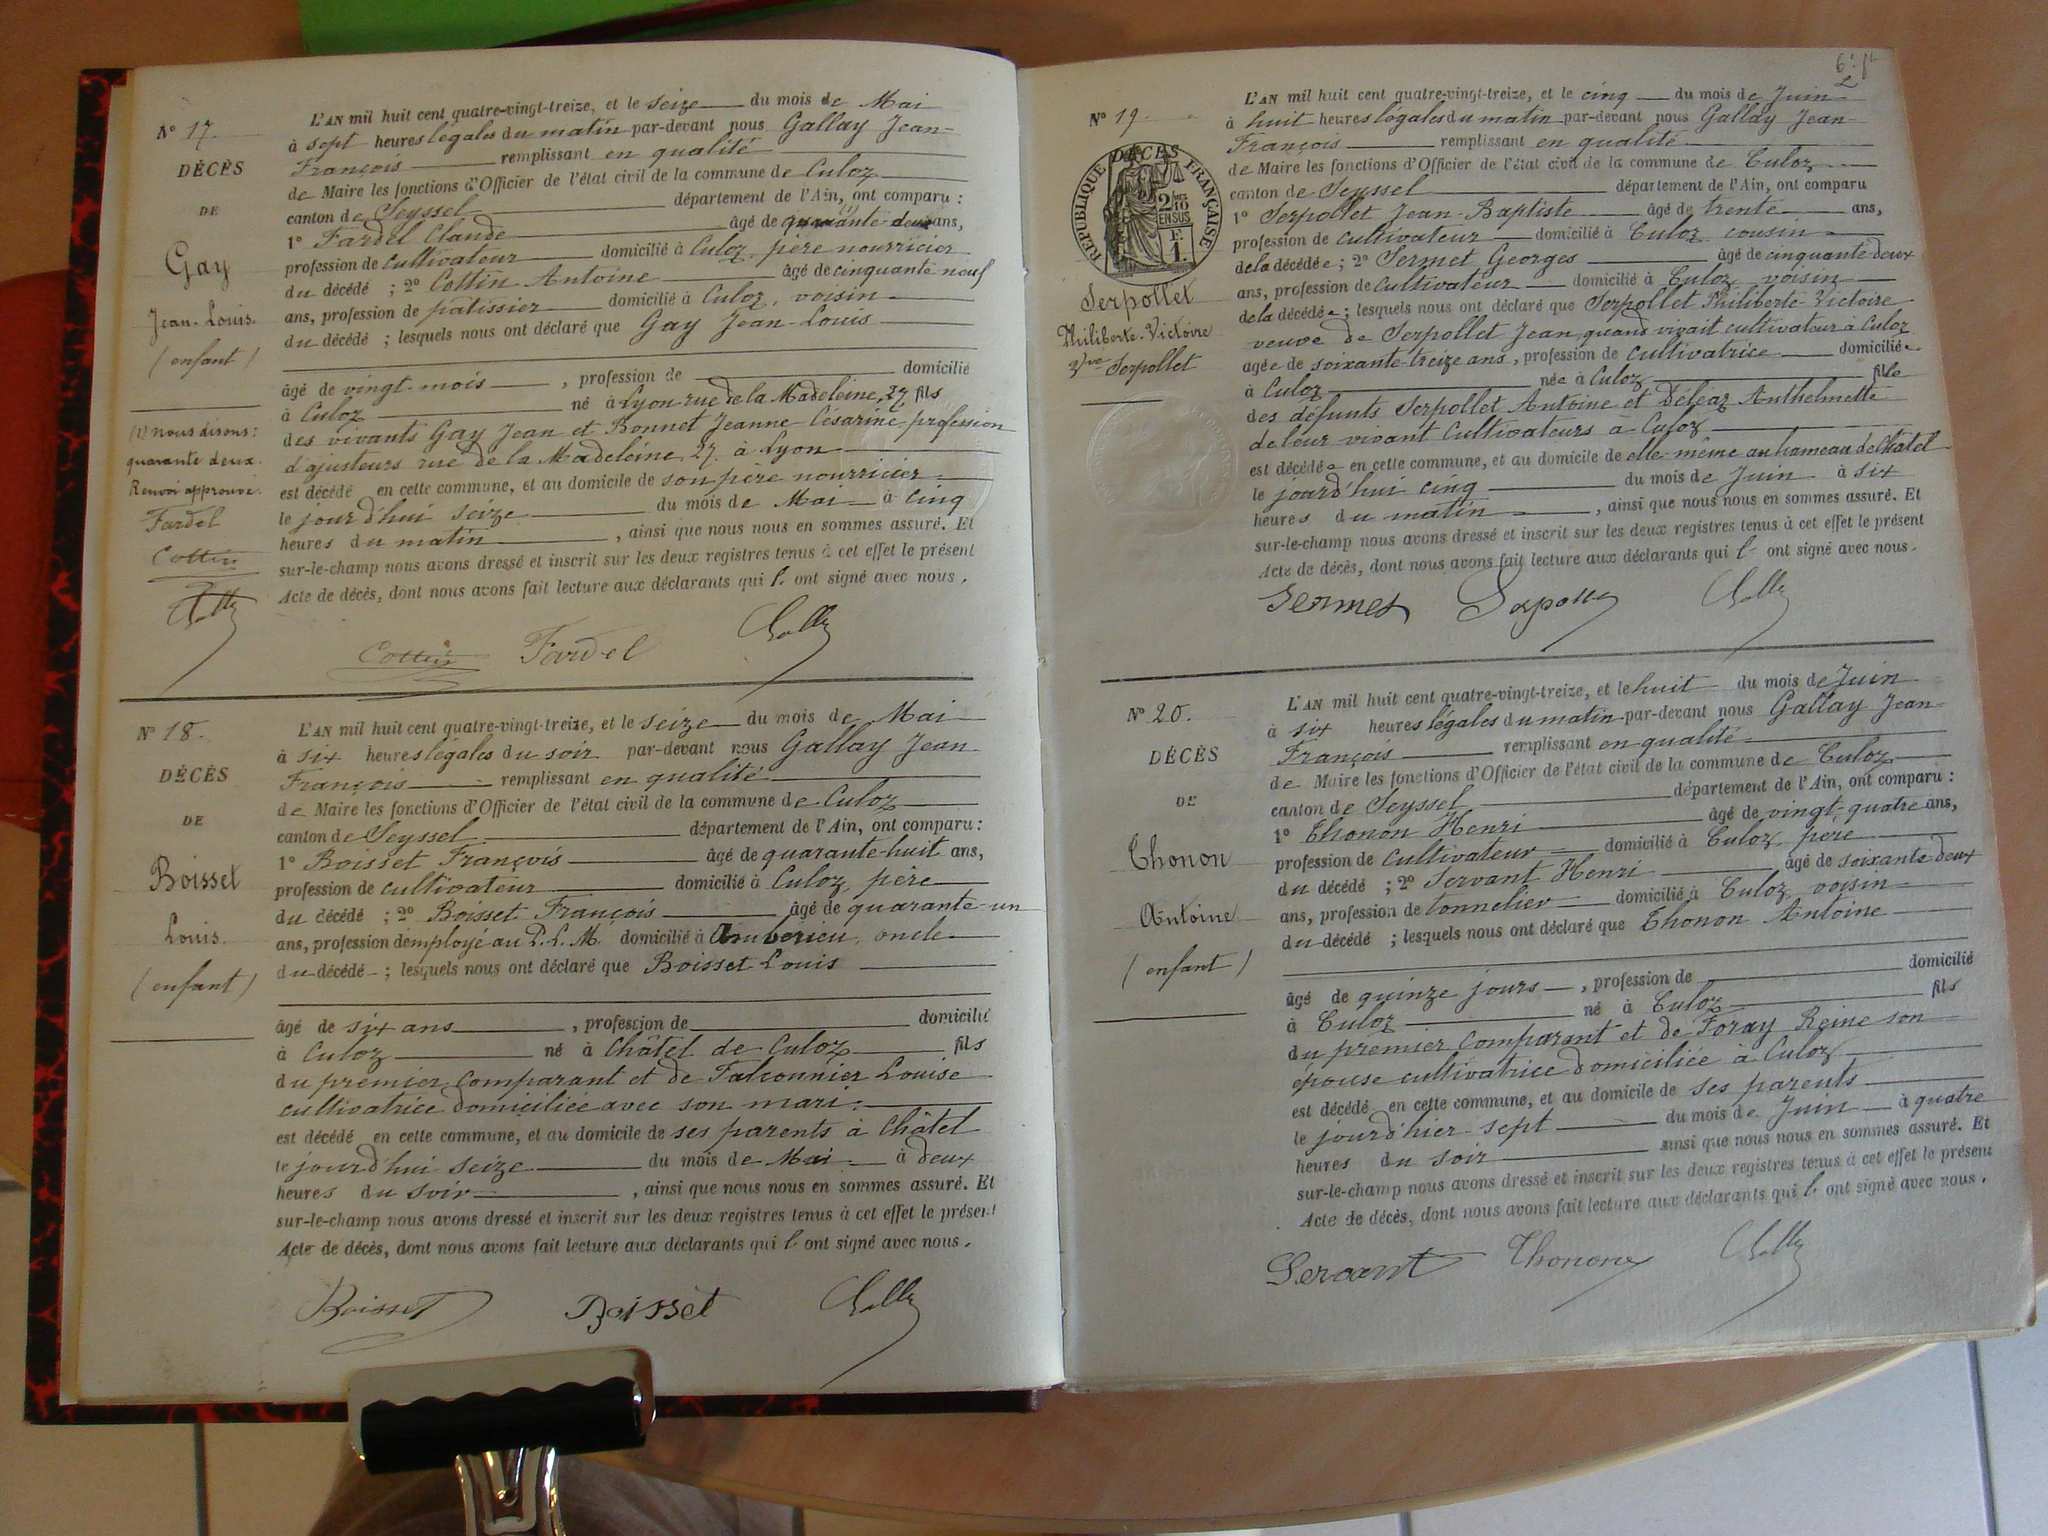 N° 17.
DÉCÈS
DE
Gay
Jean-Louis.
(enfant)
(1) nous disons:
quarante deux.
Renvoi approuvé.
Fardel
Cottin
L'AN mil huit cent quatre-vingt-treize, et le seize du mois de Mai
à sept heures légales du matin par-devant nous Gallay Jean-
François remplissant en qualité
de Maire les fonctions d'Officier de l'état civil de la commune de Culoz
canton de Seyssel département de l'Ain, ont comparu :
1° Fardel Claude âgé de quarante deux ans,
profession de cultivateur domicilié à Culoz, père nourricier
du décédé ; 2° Cottin Antoine âgé de cinquante neuf
ans, profession de patissier domicilié à Culoz, voisin
du décédé ; lesquels nous ont déclaré que Gay Jean-Louis
âgé de vingt-mois, profession de domicilié
à Culoz né à Lyon rue de la Madeleine, 27 fils
des vivants Gay Jean et Bonnet Jeanne-Césarine profession
d'ajusteurs rue de la Madeleine, 27. à Lyon
est décédé en cette commune, et au domicile de son père nourricier
le jourd'hui seize du mois de Mai à cinq
heures du matin, ainsi que nous nous en sommes assuré. Et
sur-le-champ nous avons dressé et inscrit sur les deux registres tenus à cet effet le présent
Acte de décès, dont nous avons fait lecture aux déclarants qui l' ont signé avec nous.
Cottin Fardel
N° 18.
DÉCÈS
DE
Boisset
Louis.
(enfant)
L'AN mil huit cent quatre-vingt-treize, et le seize du mois de Mai
à six heures légales du soir par-devant nous Gallay Jean-
François remplissant en qualité
de Maire les fonctions d'Officier de l'état civil de la commune de Culoz
canton de Seyssel département de l'Ain, ont comparu :
1° Boisset François âgé de quarante-huit ans,
profession de cultivateur domicilié à Culoz, père
du décédé ; 2° Boisset François âgé de quarante-un
ans, profession d'employé au P.L.M. domicilié à Ambérieu, oncle
du décédé ; lesquels nous ont déclaré que Boisset Louis
âgé de six ans, profession de domicilié
à Culoz né à Châtel de Culoz fils
du premier comparant et de Falconnier Louise
cultivatrice domiciliée avec son mari.
est décédé en cette commune, et au domicile de ses parents à Châtel
le jourd'hui seize du mois de Mai à deux
heures du soir, ainsi que nous nous en sommes assuré. Et
sur-le-champ nous avons dressé et inscrit sur les deux registres tenus à cet effet le présent
Acte de décès, dont nous avons fait lecture aux déclarants qui l' ont signé avec nous.
Boisset Boisset
N° 19.
RÉPUBLIQUE FRANÇAISE
DÉCÈS
2/10 EN SUS
F. 1.
Serpollet
Philiberte-Victoire
Vve Serpollet
L'AN mil huit cent quatre-vingt-treize, et le cinq du mois de Juin
à huit heures légales du matin par-devant nous Gallay Jean-
François remplissant en qualité
de Maire les fonctions d'Officier de l'état civil de la commune de Culoz
canton de Seyssel département de l'Ain, ont comparu
1° Serpollet Jean-Baptiste âgé de trente ans,
profession de cultivateur domicilié à Culoz cousin
de la décédée ; 2° Sermet Georges âgé de cinquante deux
ans, profession de cultivateur domicilié à Culoz voisin
de la décédée ; lesquels nous ont déclaré que Serpollet Philiberte-Victoire
veuve de Serpollet Jean quand vivait cultivateur à Culoz
agée de soixante-treize ans, profession de cultivatrice domiciliée
à Culoz née à Culoz fille
des défunts Serpollet Antoine et Déléaz Anthelmette
de leur vivant cultivateurs à Culoz
est décédée en cette commune, et au domicile de elle-même au hameau de Châtel
le jourd'hui cinq du mois de Juin à six
heures du matin, ainsi que nous nous en sommes assuré. Et
sur-le-champ nous avons dressé et inscrit sur les deux registres tenus à cet effet le présent
Acte de décès, dont nous avons fait lecture aux déclarants qui l' ont signé avec nous.
Sermet
N° 20.
DÉCÈS
DE
Thonon
Antoine
(enfant)
L'AN mil huit cent quatre-vingt-treize, et le huit du mois de Juin
à six heures légales du matin par-devant nous Gallay Jean-
François remplissant en qualité
de Maire les fonctions d'Officier de l'état civil de la commune de Culoz
canton de Seyssel département de l'Ain, ont comparu :
1° Thonon Henri âgé de vingt-quatre ans,
profession de cultivateur domicilié à Culoz père
du décédé ; 2° Servant Henri âgé de soixante deux
ans, profession de tonnelier domicilié à Culoz voisin
du décédé ; lesquels nous ont déclaré que Thonon Antoine
âgé de quinze jours, profession de domicilié
à Culoz né à Culoz fils
du premier comparant et de Foray Reine son
épouse cultivatrice domiciliée à Culoz
est décédé en cette commune, et au domicile de ses parents
le jourd'hier sept du mois de Juin à quatre
heures du soir ainsi que nous nous en sommes assuré. Et
sur-le-champ nous avons dressé et inscrit sur les deux registres tenus à cet effet le présent
Acte de décès, dont nous avons fait lecture aux déclarants qui l' ont signé avec nous.
Servant Thonon